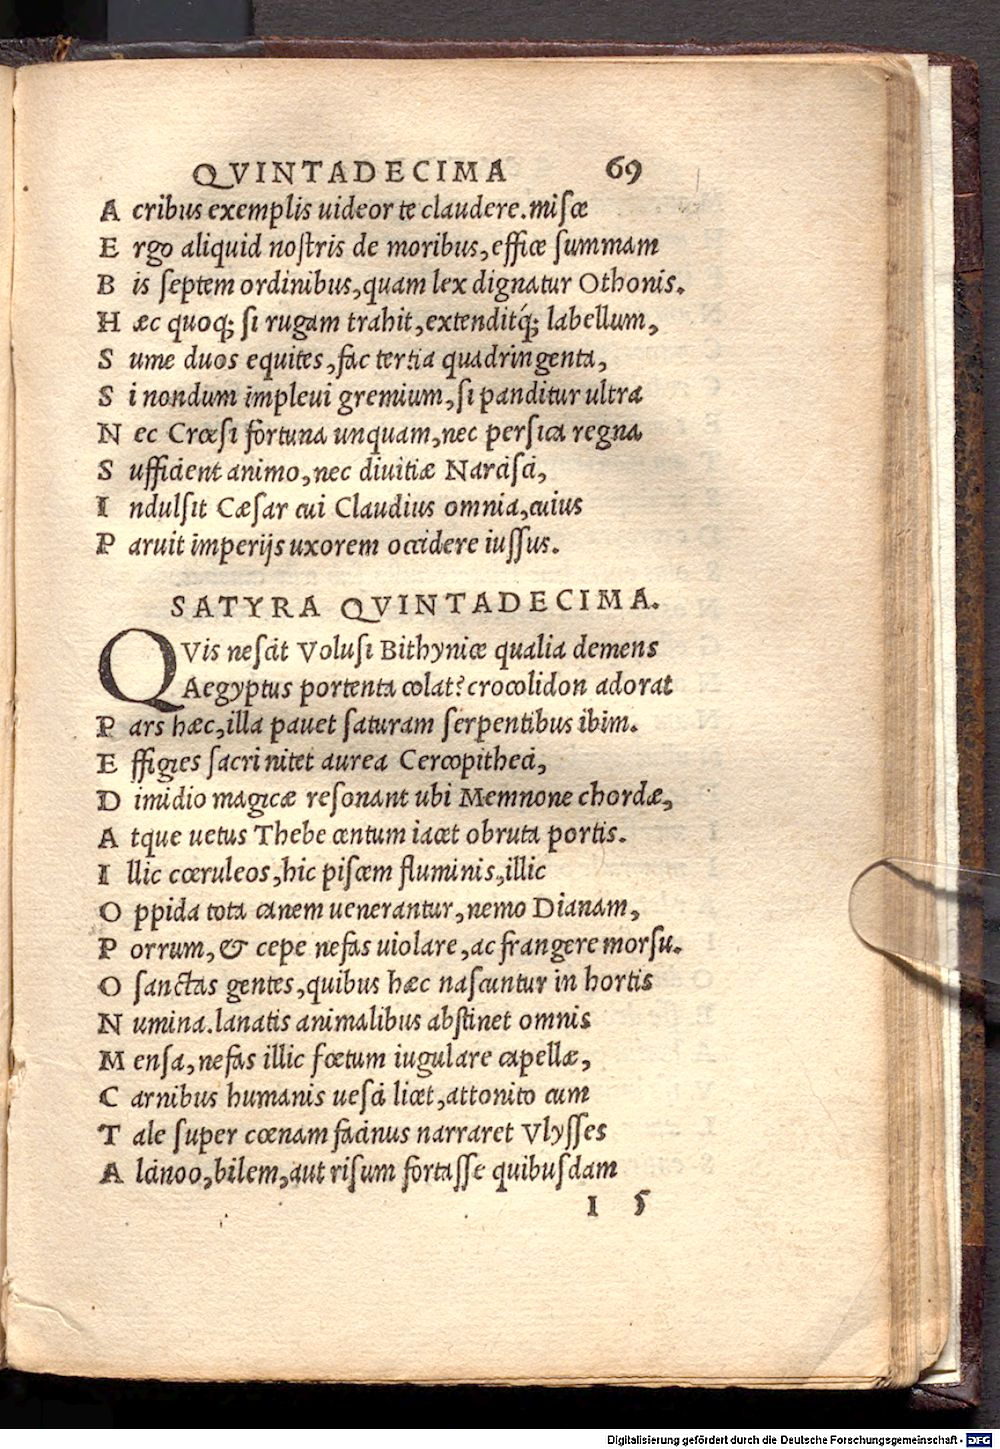 QVINTADECIMA 69
A cribus exemplis uideor te claudere. misce
E rgo aliquid nostris de moribus, effice summam
B is septem ordinibus, quam lex dignatur Othonis.
H æc quoq; si rugam trahit, extenditq́; labellum,
S ume duos equites, fac tertia quadringenta,
S i nondum impleui gremium, si panditur ultra
N ec Crœsi fortuna unquam, nec persica regna
S ufficient animo, nec diuitiæ Narcisci,
I ndulsit Cæsar cui Claudius omnia, cuius
P aruit imperijs uxorem occidere iussus.
SATYRA QVINTADECIMA.
QVis nescit Volusi Bithynice qualia demens
Aegyptus portenta colat? crocolidon adorat
P ars hæc, illa pauet saturam serpentibus ibim.
E ffigies sacri nitet aurea Cercopitheci,
D imidio magicæ resonant ubi Memnone chordæ,
A tque uetus Thebe centum iacet obruta portis.
I llic cœruleos, hic piscem fluminis, illic
O ppida tota canem uenerantur, nemo Dianam,
P orrum, & cepe nefas uiolare, ac frangere morsu.
O sanctas gentes, quibus hæc nascuntur in hortis
N umina. lanatis animalibus abstinet omnis
M ensa, nefas illic fœtum iugulare capellæ,
C arnibus humanis uesci licet, attonito cum
T ale super cœnam facinus narraret Vlysses
A lcinoo, bilem, aut risum fortasse quibusdam
I 5
Digitalisierung gefördert durch die Deutsche Forschungsgemeinschaft - DFG